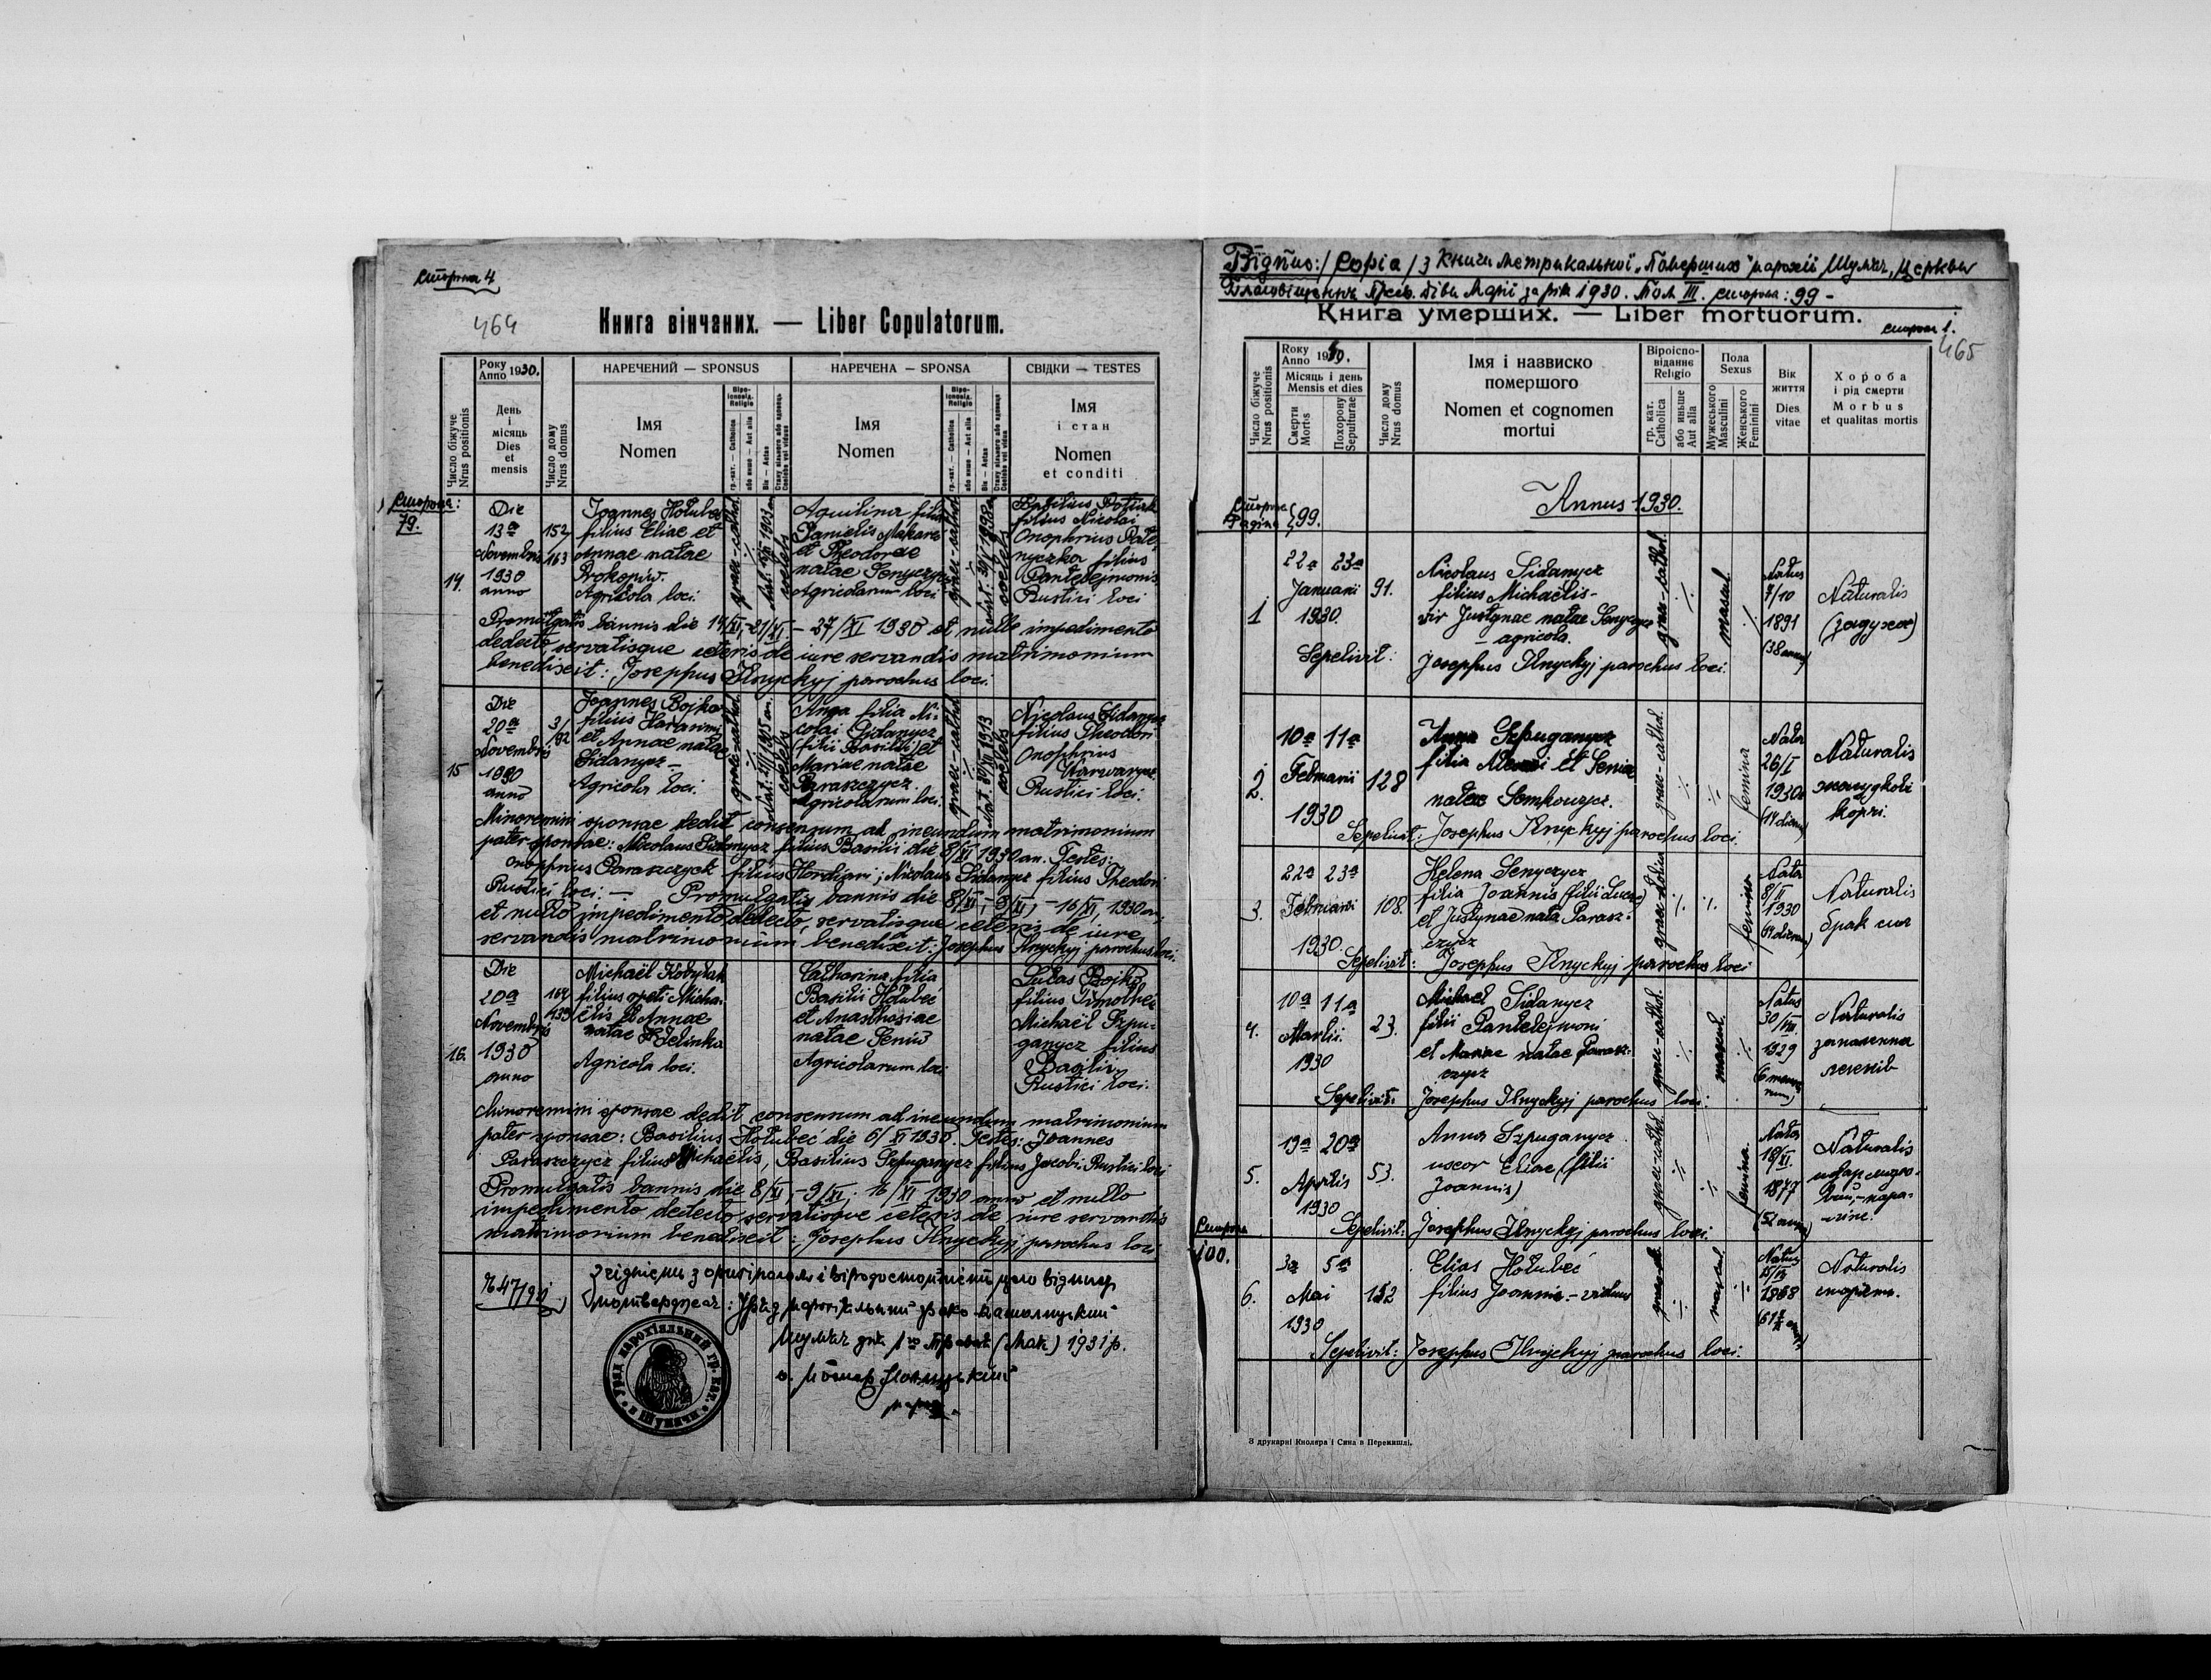 сторона 4
464
Книга вінчаних. — Liber Copulatorum.
Число біжуче
Nrus positionis
Року
Anno 1930.
День
і
місяць
Dies
et
mensis
Число дому
Nrus domus
НАРЕЧЕНИЙ — SPONSUS
Імя
Nomen
НАРЕЧЕНА — SPONSA
Імя
Nomen
СВІДКИ — TESTES
Імя
і стан
Nomen
et conditi
Сторона:
79.
14.
Die
13a
Novembris
1930
anno
152
163
Joannes Hołubec
filius Eliae et
Annae natae
Prokopiw.
Agricola loci.
graec-cathol.
coelebs
Aquilina filia
Danielis Makara
et Theodorae
natae Senyczycz
Agricolarum loci
graec-cathol.
coelebs
filius Nicolai
Onophrius
nyczka filius
Pantelejmonis
Rustici loci
Promulgatis bannis die 14/XI, -21/XI. - 27/XI 1930 et nullo impedimento
dedecto servatisque ceteris de iure servandis matrimonium
benedixit: Josephus Ilnyckyj parochus loci.
15
Die
20a
Novembris
1930
anno
3/
92
Joannes Bojko
filius Harasimi
et Annae natae
Sidanycz —
Agricola loci.
graec-cathol.
coelebs
Anna filia Ni-
colai Sidanycz
(filii Basilii) et
Mariae natae
Paraszczycz.
Agricolarum loci.
graec-cathol.
coelebs
Nicolaus Sidanycz
filius Theodori
Onophrius
Rustici loci.
Minorennini sponsae dedit consensum ad ineundum matrimonium
pater sponsae: Nicolaus Sidanycz filius Basilii die 8/XI 1930 an. Testes:
Onophrius Paraszczyck filius Hordiani; Nicolaus Sidanycz filius Theodori
Rustici loci. — Promulgatis bannis die 8/XI, - 9/XI, - 16/XI, 1930 an.
et nullo impedimento dedecto, servatisque ceteris de iure
servandis matrimonium benedixit: Josephus Ilnyckyj parochus loci.
16.
Die
20a
Novembris
1930
anno
164
139
Michaël Kobylak
filius Micha-
elis et Annae
natae
Agricola loci.
Catharina filia
Basilii Hołubeć
et Anasthasiae
natae Seniw
Agricolarum loci
Lukas Bojko
filius Timothei
Michaël Szpu-
ganycz filius
Basilii.
Rustici loci.
Minorennini sponsae dedit consensum ad ineundum matrimonium
pater sponsae: Basilius Hołubeć die 6/XI 1930. Testes: Joannes
Paraszczycz filius Michaëlis, Basilius Szpuganycz filius Jacobi Rustici loci
Promulgatis bannis die 8/XI, - 9/XI, 16/XI 1930 anno et nullo
impedimento dedecto servatisque ceteris de iure servandis
matrimonium benedixit: Josephus Ilnyckyj parochus loci
Ч. 47/931
Згідність з оригіналом і вірогідність цего відпису
потверджає: Уряд парохіяльний греко-католицький
Шумяч дня 1го Травня (Мая) 1931 р.
УРЯД ПАРОХІЯЛЬНИЙ ГР. КАТ.
Відпис: / Copia / з книги метрикальної „Померших" парохії Шумяч, Церкви
Благовіщення Пресв. Діви Марії за рік 1930. Том III. сторона: 99 -
Книга умерших. — Liber mortuorum.
сторона 1.
465
Число біжуче
Nrus positionis
Року
Anno 1930.
Місяць і день
Mensis et dies
Смерти
Mortis
Похорону
Sepulturae
Число дому
Nrus domus
Імя і назвиско
померщого
Nomen et cognomen
mortui
Віроіспо-
віданнє
Religio
гр. кат.
Catholica
або иньше
Aut alia
Пола
Sexus
Мужеського
Masculini
Женського
Feminini
Вік
життя
Dies
vitae
Хороба
і рід смерти
Morbus
et qualitas mortis
Annus 1930.
Сторона
Pagina 99.
1
22a 23a
Januarii
1930.
91.
Nicolaus Sidanycz
filius Michaëlis-
vir Justynae natae Senyczycz
- agricola.
graec-cathol.
mascul.
Natus
7/10
1891
(38 anno)
Naturalis
(задуха)
Sepelivit: Josephus Ilnyckyj parochus loci.
2.
10a 11a
Februarii
1930
128
Anna Szpuganycz
filia Alexii et Senia
natae Semkowycz.
graec-cathol.
femina
Nata
26/I
1930
(14 dierum)
Naturalis
жолудкові
корчі.
Sepelivit: Josephus Ilnyckyj parochus loci.
3.
22a 23a
Februarii
1930.
108.
Helena Senyczycz
filia Joannis (filii Lucae)
et Justynae nata Parasz-
czycz
femina
Nata
8/II
1930
(14 dierum)
Naturalis
брак сил
Sepelivit: Josephus Ilnyckyj parochus loci
4.
10a 11a
Martii
1930
23.
Michael Sidanycz
filii Pantelejmoni
et Mariae natae Parasz-
czycz
graec-cathol.
mascul.
Natus
30/VIII
1929
(6 mensi
num)
Naturalis
запалення
легенів
Sepelivit: Josephus Ilnyckyj parochus loci.
5.
19a 20a
Aprilis
1930
53.
Anna Szpuganycz
uxor Eliae (filii
Joannis)
graec-cathol.
femina
Nata
18/XI.
1877
(52 anno)
Naturalis
Sepelivit: Josephus Ilnyckyj parochus loci.
Сторона
100.
6.
3a 5a
Mai
1930
152
Elias Hołubeć
filius Joannis - viduus
mascul
Natus
1868
Naturalis
старість.
Sepelivit: Josephus Ilnyckyj parochus loci.
З друкарні Кнолера і Сина в Перемишлі.